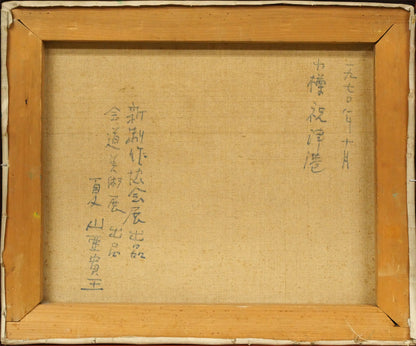 一九七〇年十月
小樽 祝津港
新制作協会展出品
全道美術展出品
夏山亜貴王